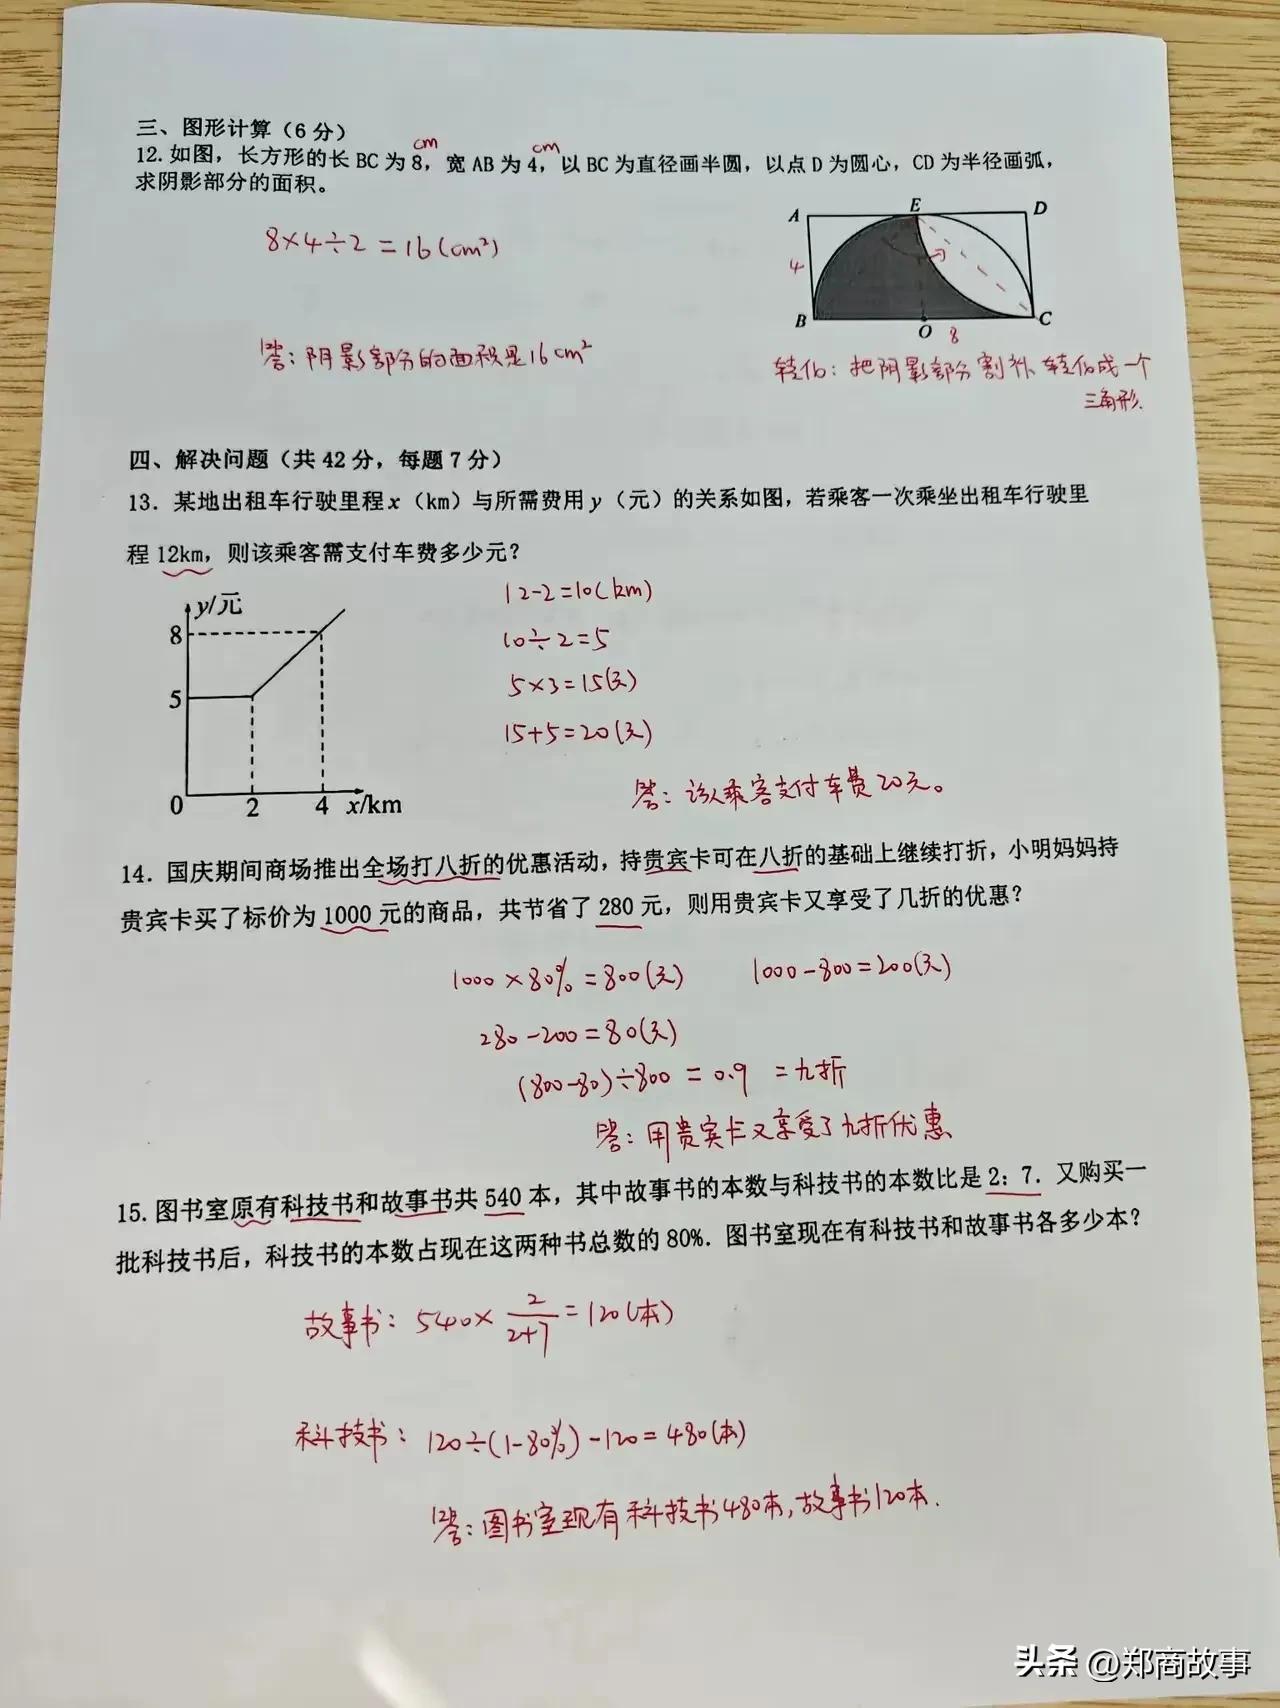 三、图形计算（6 分）
12. 如图，长方形的长 BC 为 8cm，宽 AB 为 4cm，以 BC 为直径画半圆，以点 D 为圆心，CD 为半径画弧，
求阴影部分的面积。
8×4÷2=16(cm²)
答：阴影部分的面积是16cm²
A E D
4
B O 8 C
转化：把阴影部分割补转化成一个
三角形.
四、解决问题（共 42 分，每题 7 分）
13. 某地出租车行驶里程 x（km）与所需费用 y（元）的关系如图，若乘客一次乘坐出租车行驶里
程 12km，则该乘客需支付车费多少元？
y/元
8
5
0 2 4 x/km
12-2=10(km)
10÷2=5
5×3=15(元)
15+5=20(元)
答：该乘客支付车费20元。
14. 国庆期间商场推出全场打八折的优惠活动，持贵宾卡可在八折的基础上继续打折，小明妈妈持
贵宾卡买了标价为 1000 元的商品，共节省了 280 元，则用贵宾卡又享受了几折的优惠？
1000×80%=800(元) 1000-800=200(元)
280-200=80(元)
(800-80)÷800=0.9 =九折
答：用贵宾卡又享受了九折优惠
15. 图书室原有科技书和故事书共 540 本，其中故事书的本数与科技书的本数比是 2：7. 又购买一
批科技书后，科技书的本数占现在这两种书总数的 80%. 图书室现在有科技书和故事书各多少本？
故事书：540×2/(2+7)=120(本)
科技书：120÷(1-80%)-120=480(本)
答：图书室现有科技书480本，故事书120本.
头条 @郑商故事